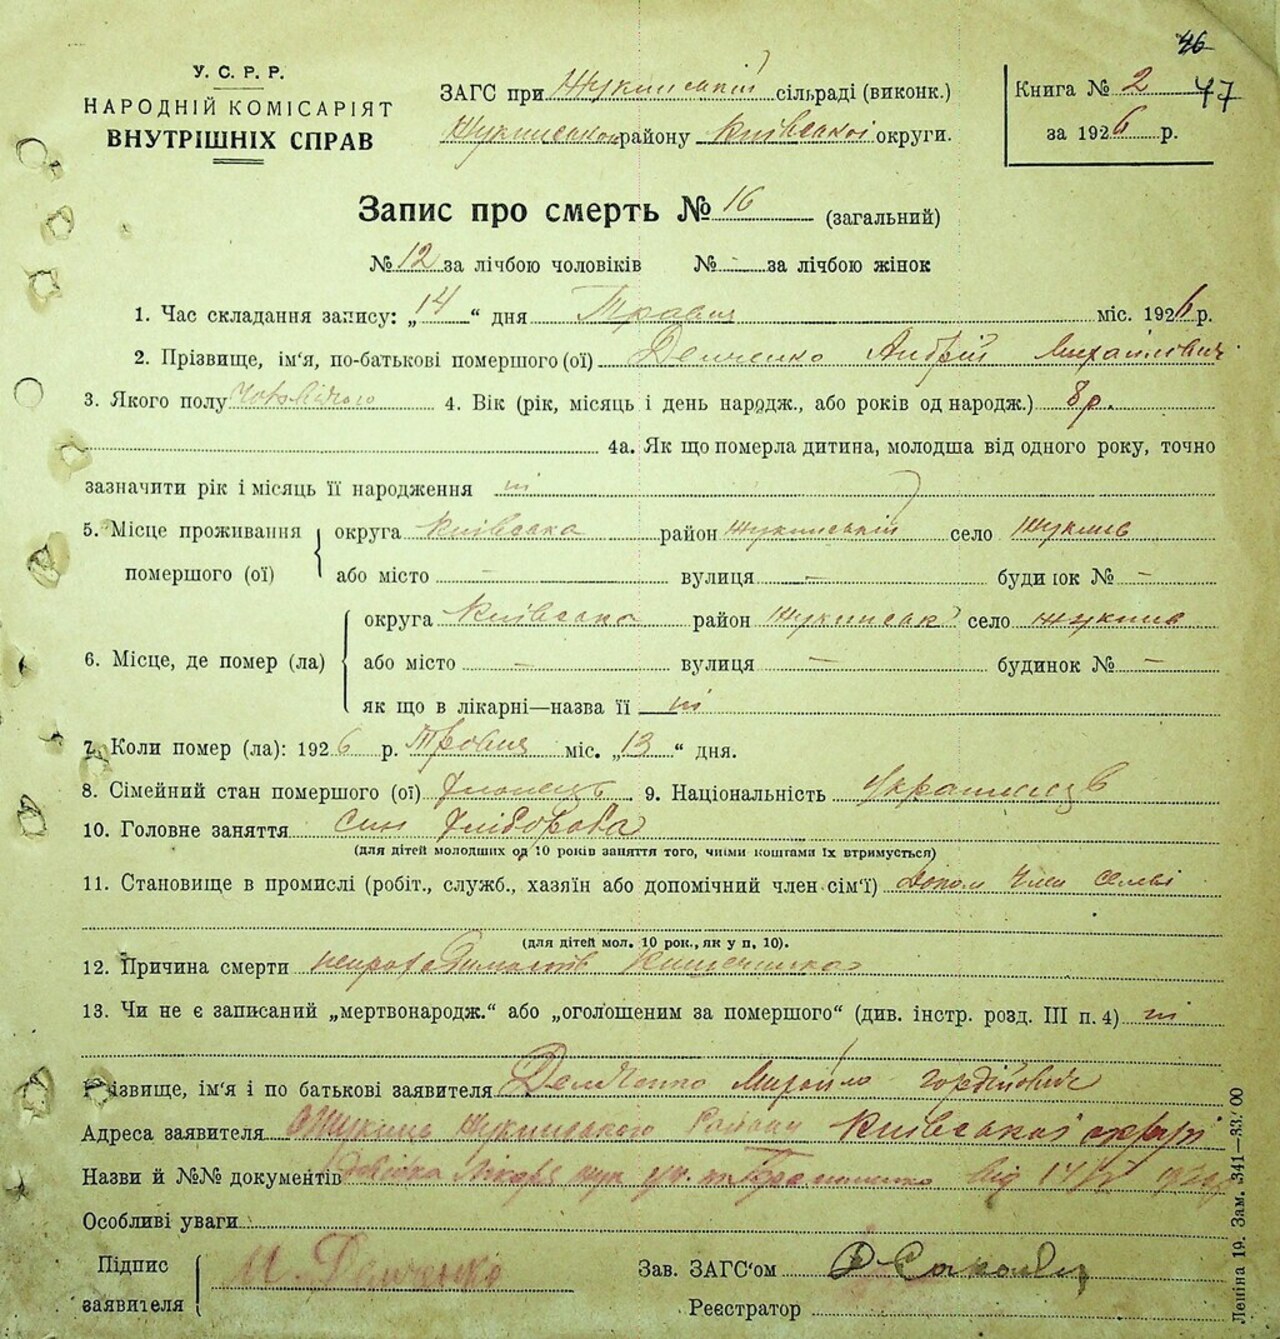 46
У. С. Р. Р.
НАРОДНІЙ КОМІСАРІЯТ
ВНУТРІШНІХ СПРАВ
ЗАГС при Жукинській сільраді (виконк.)
Жукинського району Київської округи.
Книга № 2 47
за 1926 р.
Запис про смерть № 16 (загальний)
№ 12 за лічбою чоловіків № - за лічбою жінок
1. Час складання запису: „14“ дня Травня міс. 1926 р.
2. Прізвище, ім'я, по-батькові помершого (ої) Демченко Андрій Михайлович
3. Якого полу 4. Вік (рік, місяць і день народж., або років од народж.) 8 р.
4а. Як що померла дитина, молодша від одного року, точно
зазначити рік і місяць її народження ні
5. Місце проживання помершого (ої) округа Київська район Жукинській село Жукинь
або місто - вулиця - будинок № -
6. Місце, де помер (ла) округа Київська район Жукинськ село Жукинь
або місто - вулиця - будинок № -
як що в лікарні—назва її ні
7. Коли помер (ла): 1926 р. Травня міс. „13“ дня.
8. Сімейний стан помершого (ої) хлопець 9. Національність Українець
10. Головне заняття син хлібороба
(для дітей молодших од 10 років заняття того, чиїми коштами їх втримується)
11. Становище в промислі (робіт., служб., хазяїн або допомічний член сім'ї) Допом член семьї
(для дітей мол. 10 рок., як у п. 10).
12. Причина смерти непроходимость кишечника
13. Чи не є записаний „мертвонародж.“ або „оголошеним за помершого“ (див. інстр. розд. III п. 4) ні
Прізвище, ім'я і по батькові заявителя Демченко Михайло Гордійович
Адреса заявителя с Жукинь Жукинського Району Київської округи
Назви й №№ документів Довідка Лікаря від 14/V 1926р
Особливі уваги
Підпис заявителя М. Демченко
Зав. ЗАГС'ом
Реєстратор
Леніна 19. Зам. 341—33.00